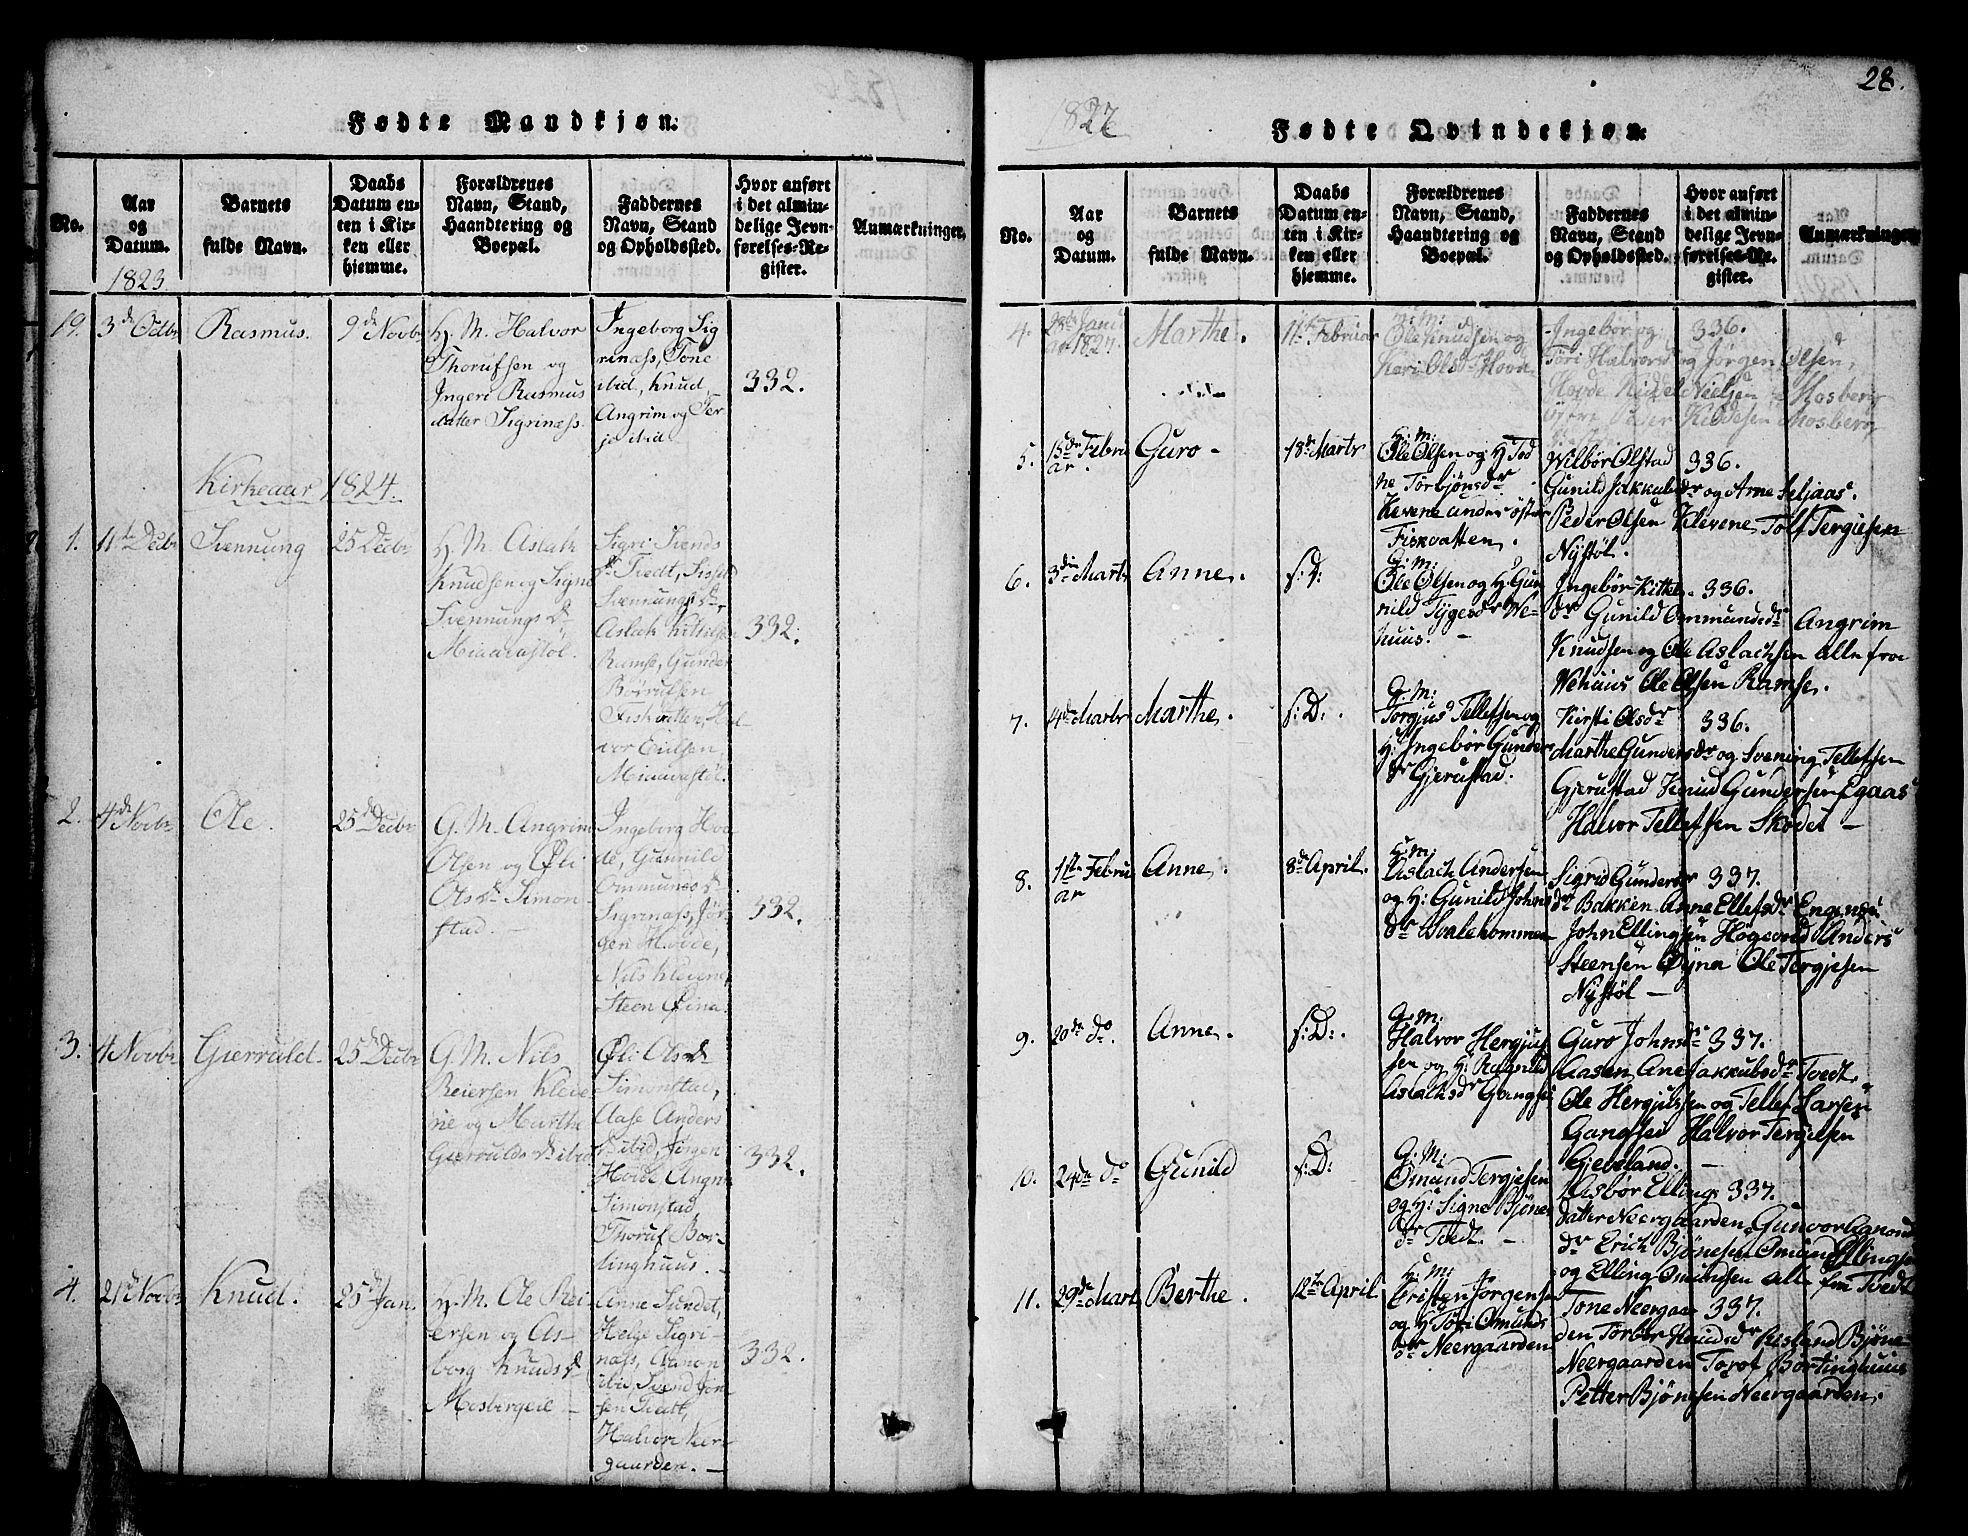 28.
Fødte Mandkjøn.
No.
Aar
og
Datum.
Barnets
fulde Navn.
Daabs
Datum en-
ten i Kir-
ken eller
hjemme.
Forældrenes
Navn, Stand,
Haandtering og
Boepæl.
Faddernes
Navn, Stand
og Opholdssted.
Hvor anført
i det almin-
delige Jevn-
førelses-Re-
gister.
Anmærkninger.
1823
19.
3de Octbr
Rasmus.
9de Novbr
H. M. Halvor
Thorufsen og
Ingeri Rasmus
datter Sigrinæss.
Ingeborg Sig
rinæss, Tone
ibid, Knud,
Angrim og Ter
je ibid
332.
Kirkeaar 1824.
1.
11te Decbr
Svennung
25 Decbr
H. M. Aslak
Knudsen og Signe
Svennungs dr
Miaavastøl.
Sigri Svends
dr Tvedt, Sissel
Svennungs dr,
Aslak Kittilsen
Ramse, Gunder
Fiskvatten, Hal
vor Emlsen
Miaavastøl.
332.
2.
4de Novbr
Ole.
25de Decbr
G. M. Angrim
Olsen og Øli
Ols dr Simon-
stad. -
Ingeborg Hov
de, Gunnild
Ommunds dr
Sigrinæss, Jør-
gen Hovde,
Nils Klevene,
Steen Øina.
332.
3.
4 Novbr
Gierruld.
25de Decbr
G. M. Nils
Reiersen Kleve
ne og Marthe
Gierrulds dr ibid
Øli Ols dr
Simonstad,
Aase Anders
dr ibid, Jørgen
Hovde Angrim
Simonstad
Thoruf Bos-
linghuus. -
332.
4.
21de Novbr
Knud.
25de Jan.
H. M. Ole Rei
ersen og As-
borg Knuds dr
Mosbergeie -
Anne Sundet,
Helge Sigri-
næss, Aanon
ibid, Svend Jon
sen Tvedt,
Halvor Neer
gaarden. -
332.
1827
Fødte Qvindekjøn.
No.
Aar
og
Datum.
Barnets
fulde Navn.
Daabs
Datum en-
ten i Kir-
ken eller
hjemme.
Forældrenes
Navn, Stand,
Haandtering og
Boepæl.
Faddernes
Navn, Stand
og Opholdssted.
Hvor anført
i det almin-
delige Jevn-
førelses-Re-
gister.
Anmærkninger
4.
28de Janu
ar 1827.
Marthe.
11te Februar
Ole Knudsen og
Kari Olsdr Hovde
Ingebør og
Töri Halvorsd og Jørgen Olsen,
Hovde Kiddel Nielsen Mosberg
Peder Kiddelsen Mosberg
336.
5.
15de Febru
ar.
Guro -
18de Marts
H: M:
Ole Olsen og H Tod
ne Torbjønsdr
Klevene under öster
Fiskvatten.
Wilbør Ølstad
Gunild Jakkubsdr og Arne Seljaas.
Peder Olsen Klevene Tolf Tergiesen
Nÿstöl.
336.
6.
3die Marts
Anne.
s: D:
G: M:
Ole Olsen og H: Gun
nild Tygesdr We-
huus. -
Ingebør Kittels
dr Gunild Ommundsdr Angrim
Knudsen og Ole Aslachsen alle fra
Wehuus Ole Olsen Ramse.
336.
7.
4de Marts
Marthe.
s: D:.
G: M:
Torgjus Tellefsen og
H: Ingebør Gunders
dr Gjerustad.
Kirsti Olsdr
Marthe Gundersdr og Svening Tellefsen
Gjerustad Knud Gundersen Egaas
Halvor Tellefsen Skodet -
336.
8.
1ste Febru
ar
Anne.
8de April.
H: M:
Aslach Andersen
og H: Gunild Johns
dr Svalehommen
Sigrid Gunders
dr Bakken Anne Ellefsdr Engene
John Ellingsen Högevold Anders
Steensen Øyna Ole Tergjesen
Nÿstöl -
337.
9.
20de do.
Anne.
s: D:.
G: M:
Halvor Hergjus
sen og H: Ragnild
Aslachsdr Gangsei
Guro Johnsdr
Aasen, Ane Jakkubsdr Tvedt,
Ole Hergjussen og Tellef Larsen
Gangsei Halvor Tergiesen
Gjeveland. -
337.
10.
24de do
Gunild
s: D:
G: M:
Omund Tergjesen
og H: Signe Bjönes
dr Tvedt. -
Asbör Ellings
datter Neergaarden, Gunvor Aanonds
dr Erich Bjönesen Omund Ellingsen
og Elling Omundsen alle fra Tvedt
337.
11.
29de Marts
Berthe.
12te April
H: M:
Cristen Jörgensen
og H Töri Omunds
dr Neergaarden
Tone Neergaar
den Torbör Knudsdr Risland Bjöne
Neergaarden Torof Bortinghuus
Petter Bjönsen Neergaarden.
337.